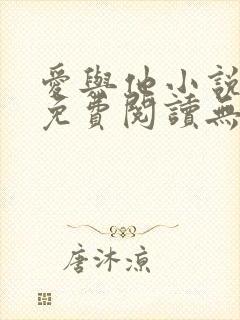 愛與他小說
免費閱讀無
唐沐涼